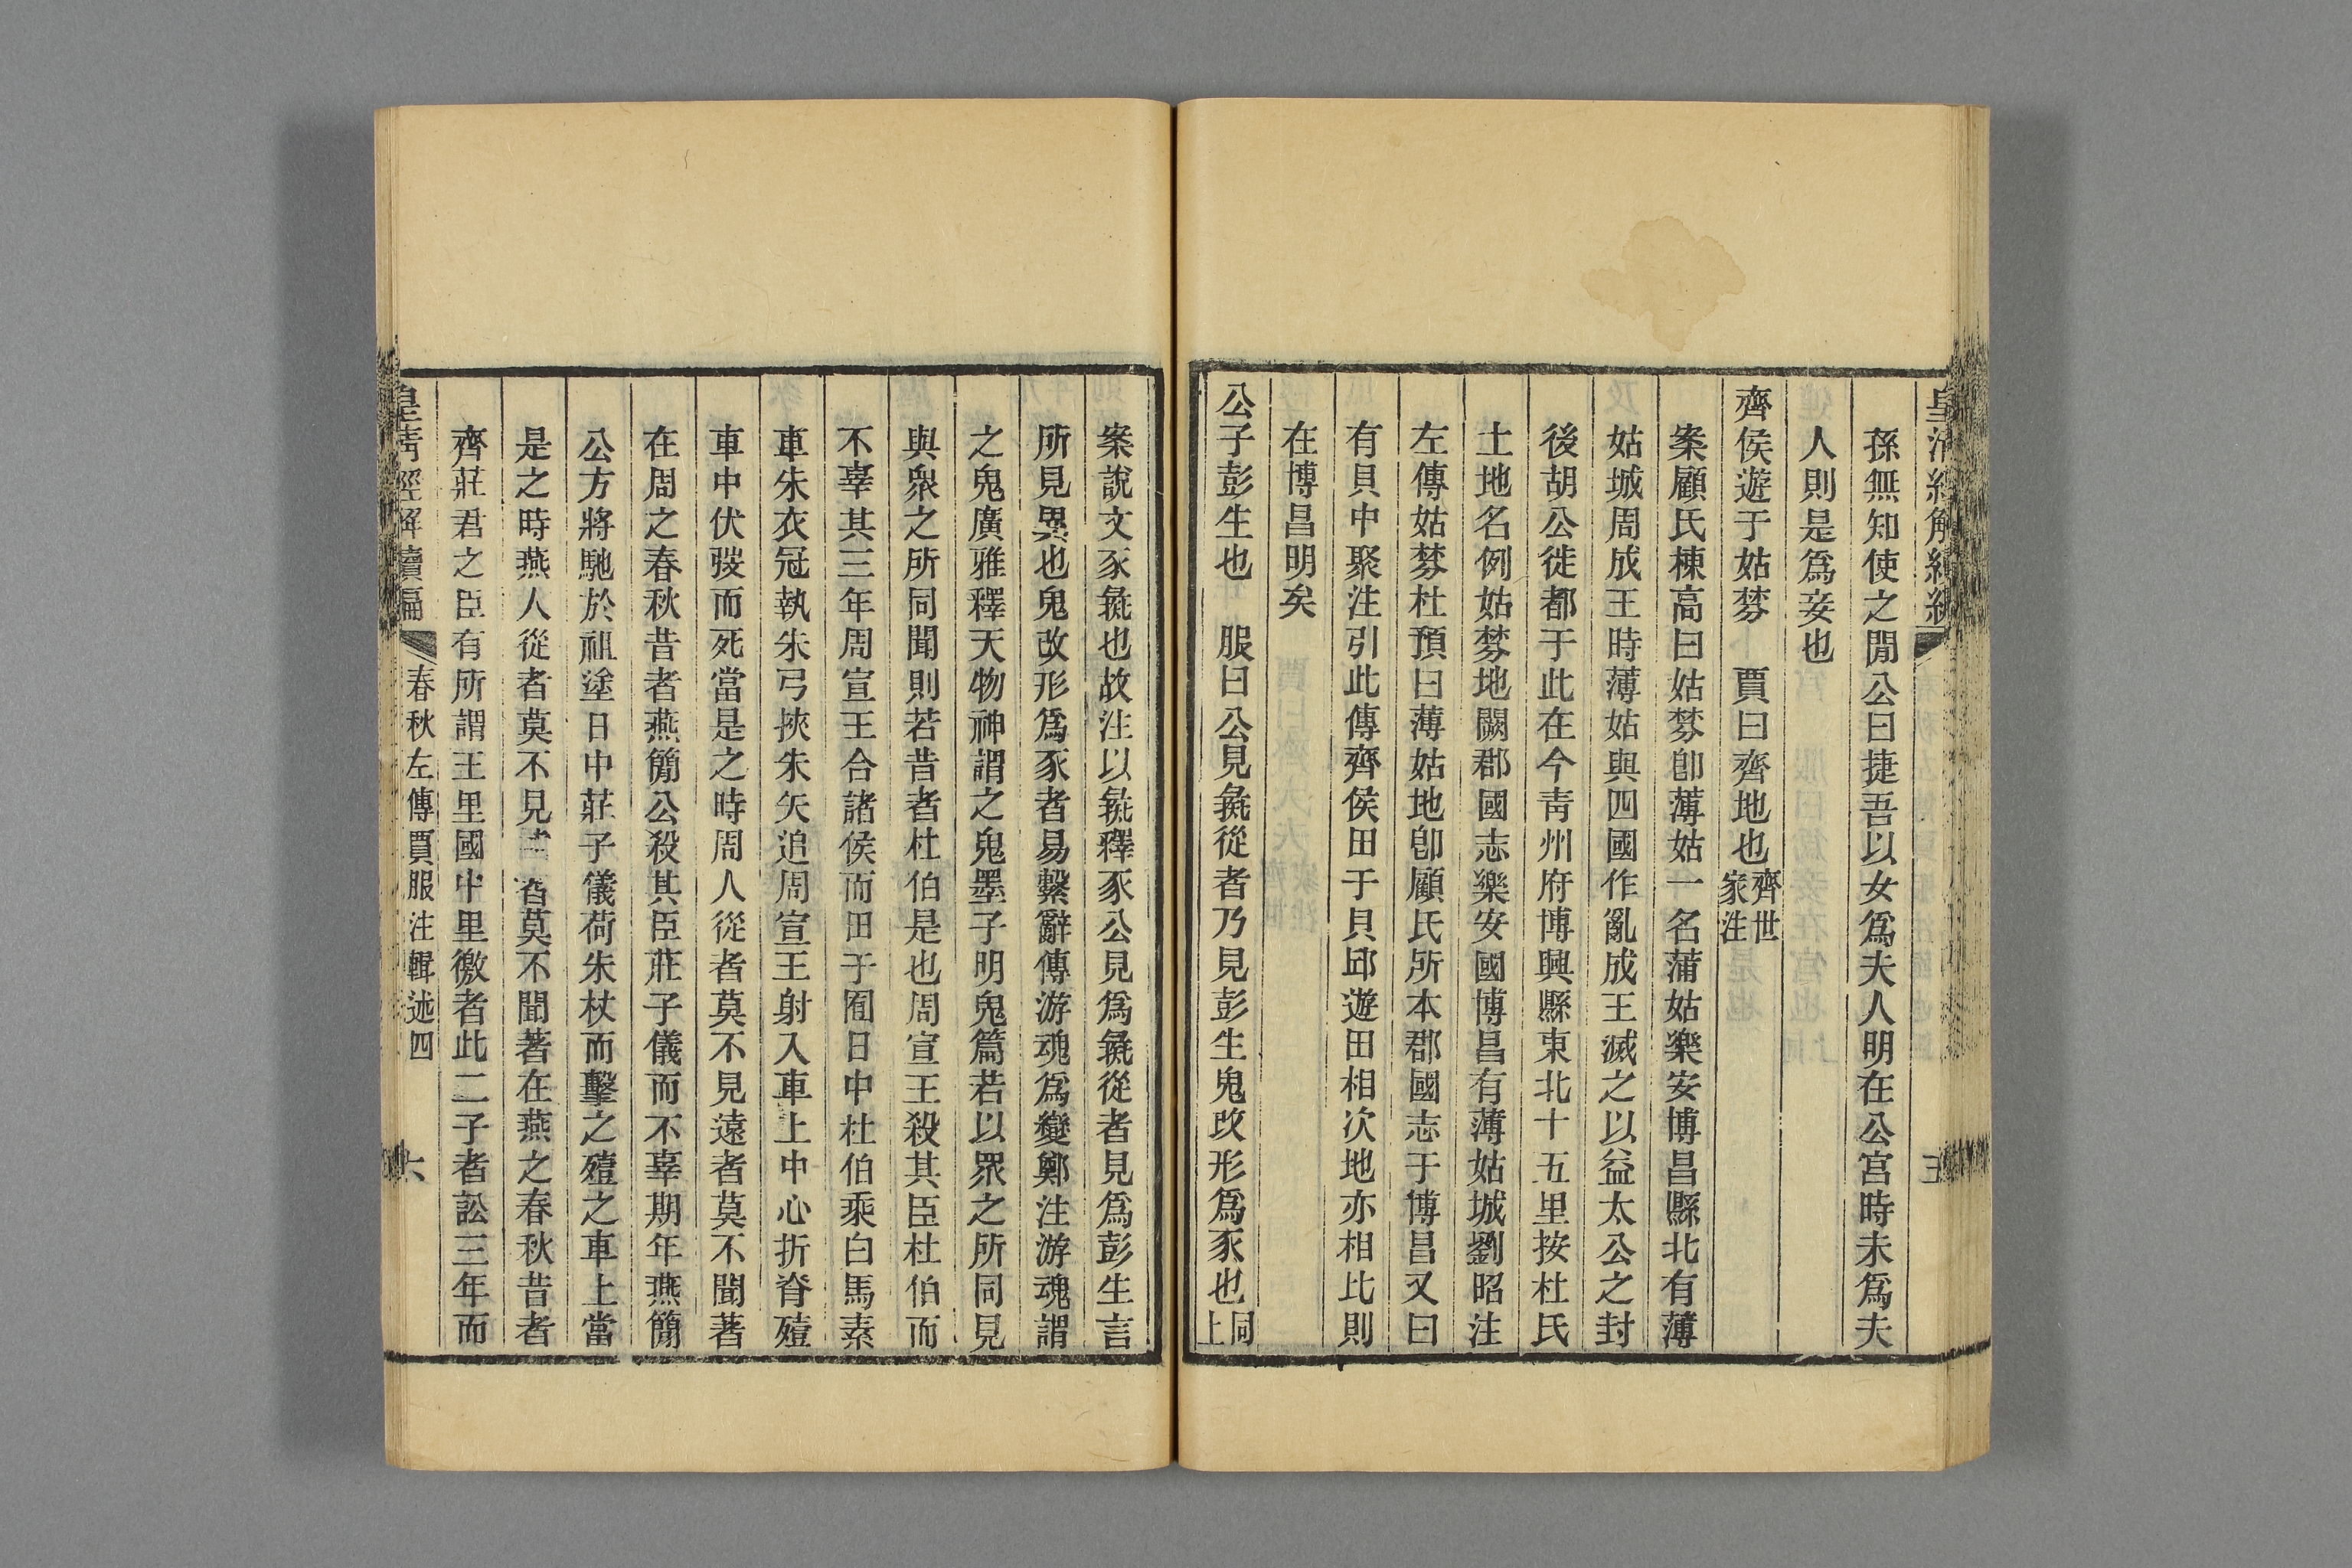 孫無知使之閒公曰捷吾以女爲夫人明在公宮時未爲夫
人則是爲妾也
齊侯遊于姑棼　賈曰齊地也齊世家注
案顧氏棟高曰姑棼卽薄姑一名蒲姑樂安博昌縣北有薄
姑城周成王時薄姑與四國作亂成王滅之以益太公之封
後胡公徙都于此在今靑州府博興縣東北十五里按杜氏
土地名例姑棼地闕郡國志樂安國博昌有薄姑城劉昭注
左傳姑棼杜預曰薄姑地卽顧氏所本郡國志于博昌又曰
有貝中聚注引此傳齊侯田于貝邱遊田相次地亦相比則
在博昌明矣
公子彭生也　服曰公見彘從者乃見彭生鬼改形爲豕也同上
案說文豕彘也故注以彘釋豕公見爲彘從者見爲彭生言
所見異也鬼改形爲豕者易繫辭傳游魂爲變鄭注游魂謂
之鬼廣雅釋天物神謂之鬼墨子明鬼篇若以眾之所同見
與眾之所同聞則若昔者杜伯是也周宣王殺其臣杜伯而
不辜其三年周宣王合諸侯而田于囿日中杜伯乘白馬素
車朱衣冠執朱弓挾朱矢追周宣王射入車上中心折脊殪
車中伏弢而死當是之時周人從者莫不見遠者莫不聞著
在周之春秋昔者燕簡公殺其臣莊子儀而不辜期年燕簡
公方將馳於祖塗日中莊子儀荷朱杖而擊之殪之車上當
是之時燕人從者莫不見者莫不聞著在燕之春秋昔者
齊莊君之臣有所謂王里國中里徼者此二子者訟三年而
皇淸經解續編　春秋左傳賈服注輯述四　六